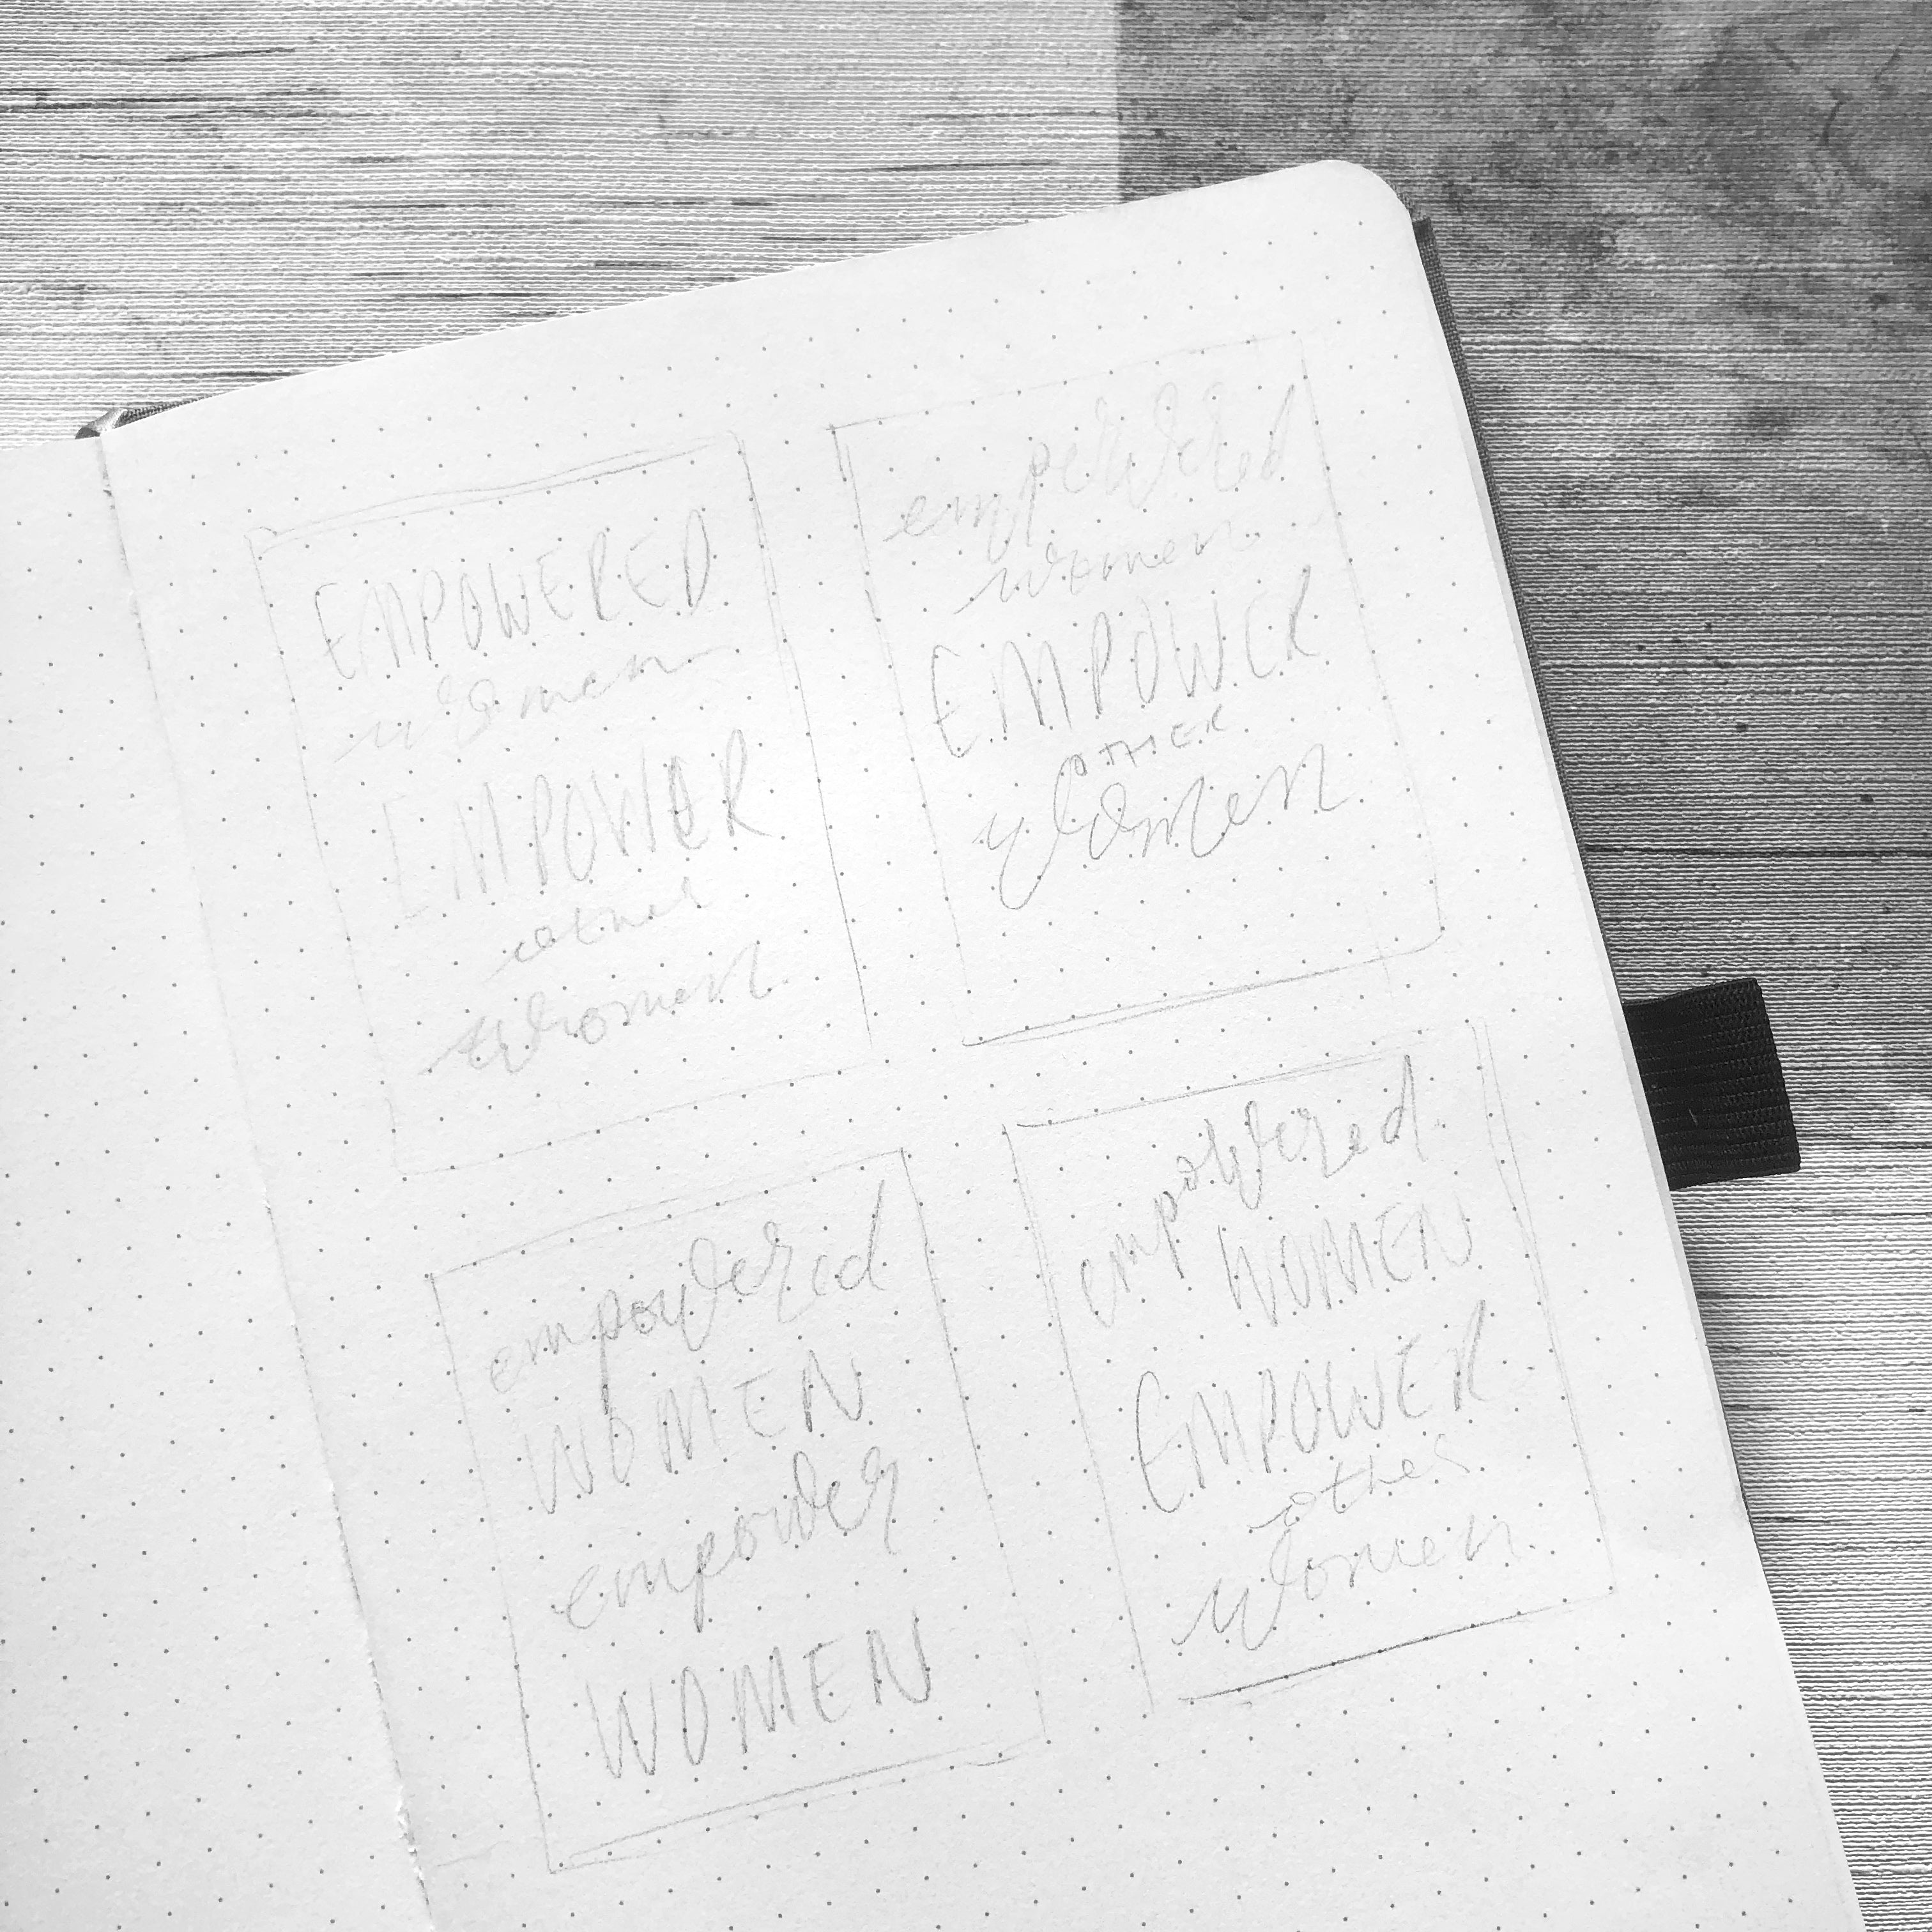 EMPOWERED
women
EMPOWER
other
women
empowered
women
EMPOWER
OTHER
women
empowered
WOMEN
empower
WOMEN
empowered
WOMEN
EMPOWER
other
women